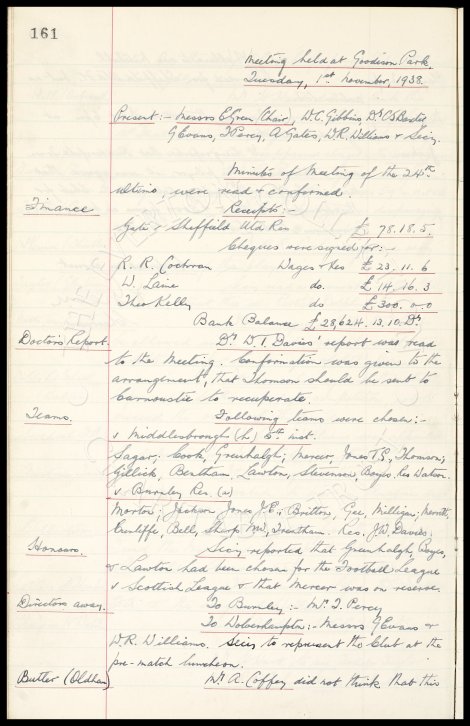 161
Meeting held at Goodison Park,
Tuesday, 1st November, 1938.
Present :- Messrs E. Green (Chair), W.C. Gibbins, Dr C.S. Baxter
G. Evans, T. Percy, A. Gates, W.R. Williams & Secy.
Minutes of Meeting of the 24th
ultimo, were read & confirmed.
Finance Receipts :-
Gate, Sheffield Utd Res £ 78.18.5.
Cheques were signed for :-
R. R. Cochran Wages & Res £ 23. 11. 6
W. Lane do. £ 14. 16. 3
Theo Kelly do £ 300. 0. 0
Bank Balance £ 28,624. 13. 10. Dr.
Doctor's Report. Dr D. T. Davies' report was read
to the Meeting. Confirmation was given to the
arrangement, that Thomson should be sent to
Carnoustie to recuperate.
Teams. Following teams were chosen :-
v Middlesbrough (h) 5th inst.
Sagar; Cook, Greenhalgh; Mercer, Jones T.G., Thomson;
Gillick, Bentham, Lawton, Stevenson, Boyes. Res Watson.
v Burnley Res. (a)
Morton; Jackson Jones J.E.; Britton, Gee, Milligan; Merritt,
Cunliffe, Bell, Sharp N.W., Trentham. Res. J.W. Davies.
Honours. Secy. reported that Greenhalgh, Boyes,
& Lawton had been chosen for the Football League
v Scottish League & that Mercer was on reserve.
Directors away. To Burnley :- Mr T. Percy
To Wolverhampton :- Messrs G. Evans &
W.R. Williams. Secy to represent the Club at the
pre-match luncheon.
Butler (Oldham) Mr. A. Coffey did not think that this